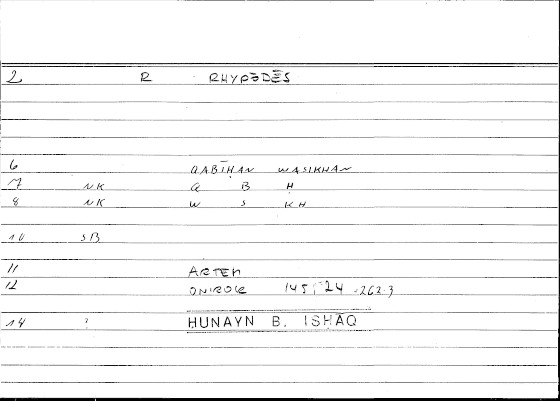 2 R RHYPƏDĒS
6 QABĪḤAN WASIKHAN
7 NK Q B Ḥ
8 NK W S KH
10 SB
11 ARTEM
12 ONIROCR 145,24 -262.3
14 ? HUNAYN B. ISHĀQ